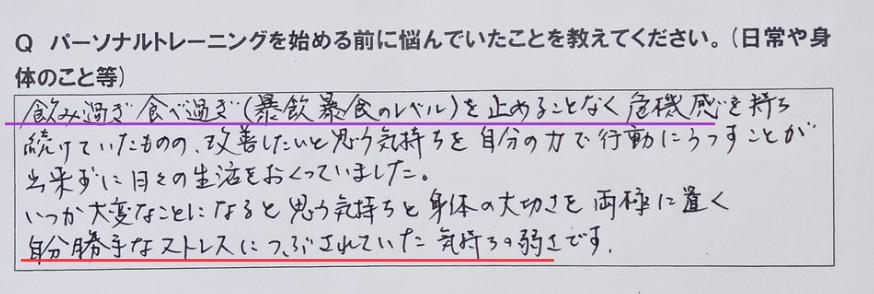 Q パーソナルトレーニングを始める前に悩んでいたことを教えてください。(日常や身
体のこと等)
飲み過ぎ食べ過ぎ(暴飲暴食のレベル)を止めることなく危機感を持ち
続けていたものの、改善したいと思う気持ちを自分の力で行動にうつすことが
出来ずに日々の生活をおくっていました。
いつか大変なことになると思う気持ちと身体の大切さを両極に置く
自分勝手なストレスにつぶされていた気持ちの弱さです.